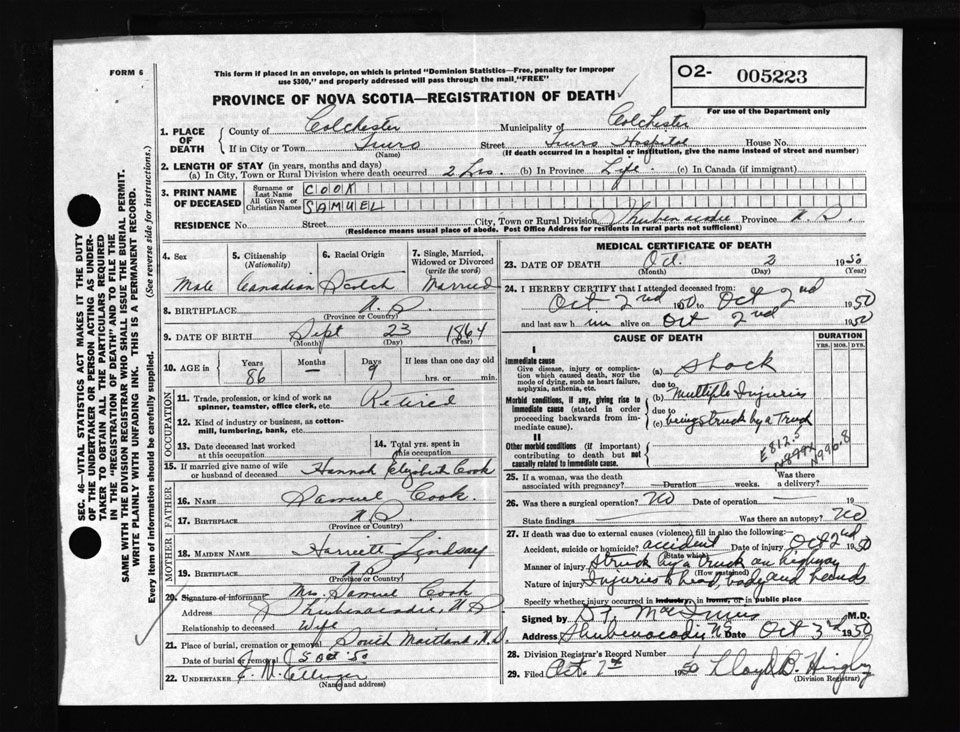 FORM 6
This form if placed in an envelope, on which is printed "Dominion Statistics—Free, penalty for improper
use $300," and properly addressed will pass through the mail, "FREE"
O2- 005223
For use of the Department only
PROVINCE OF NOVA SCOTIA—REGISTRATION OF DEATH
1. PLACE OF DEATH
County of Colchester Municipality of Colchester
If in City or Town Truro Street Truro Hospital House No.
(Name) (If death occurred in a hospital or institution, give the name instead of street and number)
2. LENGTH OF STAY (in years, months and days)
(a) In City, Town or Rural Division where death occurred 2 hrs. (b) In Province Life. (c) In Canada (if immigrant)
3. PRINT NAME OF DECEASED
Surname or Last Name COOK
All Given or Christian Names SAMUEL
RESIDENCE No. Street City, Town or Rural Division Shubenacadie Province N.S.
(Residence means usual place of abode. Post Office Address for residents in rural parts not sufficient)
4. Sex
Male
5. Citizenship (Nationality)
Canadian
6. Racial Origin
Scotch
7. Single, Married, Widowed or Divorced (write the word)
Married
8. BIRTHPLACE N.S.
(Province or Country)
9. DATE OF BIRTH Sept 23 1864
(Month) (Day) (Year)
10. AGE in Years Months Days If less than one day old
86 — 9 hrs. or min.
OCCUPATION
11. Trade, profession, or kind of work as spinner, teamster, office clerk, etc. Retired
12. Kind of industry or business, as cotton-mill, lumbering, bank, etc.
13. Date deceased last worked at this occupation
14. Total yrs. spent in this occupation
15. If married give name of wife or husband of deceased Hannah Elizabeth Cook
FATHER
16. NAME Samuel Cook.
17. BIRTHPLACE N.S.
(Province or Country)
MOTHER
18. MAIDEN NAME Harriett Lindsay
19. BIRTHPLACE N.S.
(Province or Country)
20. Signature of informant Mrs. Samuel Cook
Address Shubenacadie, N.S
Relationship to deceased Wife
21. Place of burial, cremation or removal South Maitland N.S.
Date of burial or removal 5 Oct '50
22. UNDERTAKER E. M. Ettinger
(Name and address)
MEDICAL CERTIFICATE OF DEATH
23. DATE OF DEATH Oct. 2 1950
(Month) (Day) (Year)
24. I HEREBY CERTIFY that I attended deceased from:
Oct. 2nd 1950 to Oct 2nd 1950
and last saw him alive on Oct 2nd 1950
CAUSE OF DEATH
DURATION
YRS. MOS. DYS.
I
Immediate cause
Give disease, injury or complication which caused death, NOT the mode of dying, such as heart failure, asphyxia, asthenia, etc.
(a) Shock
due to
Morbid conditions, if any, giving rise to immediate cause (stated in order proceeding backwards from immediate cause).
(b) Multiple Injuries
due to
(c) being struck by a Truck
II
Other morbid conditions (if important) contributing to death but not causally related to immediate cause.
E812.5
N996.8
25. If a woman, was the death associated with pregnancy? Duration weeks. Was there a delivery?
26. Was there a surgical operation? No Date of operation — 19
State findings Was there an autopsy? No
27. If death was due to external causes (violence) fill in also the following:
Accident, suicide or homicide? accident Date of injury Oct 2nd 1950
(State which)
Manner of injury struck by a truck on highway
(How sustained)
Nature of injury Injuries to head, body and hands
Specify whether injury occurred in industry, in home, or in public place
Signed by D F MacInnis M.D.
Address Shubenacadie NS Date Oct 3rd 1950
28. Division Registrar's Record Number
29. Filed Oct. 7th 1950 Lloyd D. Hingley
(Division Registrar)
SEC. 46—VITAL STATISTICS ACT MAKES IT THE DUTY
OF THE UNDERTAKER OR PERSON ACTING AS UNDER-
TAKER TO OBTAIN ALL THE PARTICULARS REQUIRED
IN THE "REGISTRATION OF DEATH" AND TO FILE THE
SAME WITH THE DIVISION REGISTRAR WHO SHALL ISSUE THE BURIAL PERMIT.
WRITE PLAINLY WITH UNFADING INK. THIS IS A PERMANENT RECORD.
Every item of information should be carefully supplied. (See reverse side for instructions.)